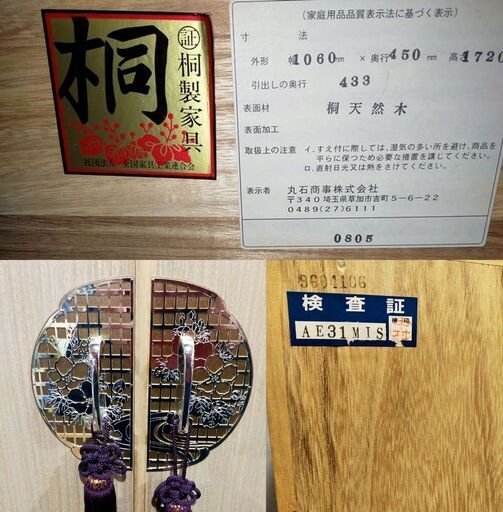 桐
証 桐製家具
社団法人 全国家具工業連合会
(家庭用品品質表示法に基づく表示)
寸法
外形 幅1060mm ×奥行450mm 高さ1720
引出しの奥行 433
表面材 桐天然木
表面加工
取扱上の注意 イ.すえ付に際しては、湿気の多い所を避け、商品を
平らに保つため必要な措置を講じてください。
ロ.直射日光又は熱をさけてください。
表示者 丸石商事株式会社
〒340 埼玉県草加市吉町5-6-22
0489(27)6111
0805
9601106
検査証
AE31MIS